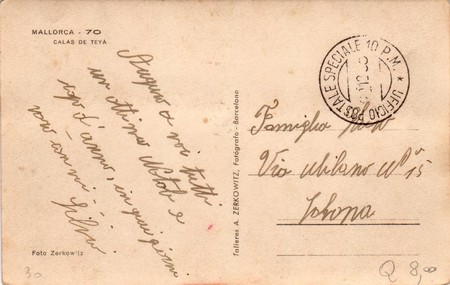 MALLORCA - 70
CALAS DE TEYÁ
Auguro a voi tutti
un ottimo Natale e
capo d'anno, in quei giorni
sarò con voi
Foto Zerkowitz
Talleres A. ZERKOWITZ, Fotógrafo - Barcelona
UFFICIO POSTALE SPECIALE 10 P.M.
Famiglia
Via Milano Nº 15
30
Q 8,00